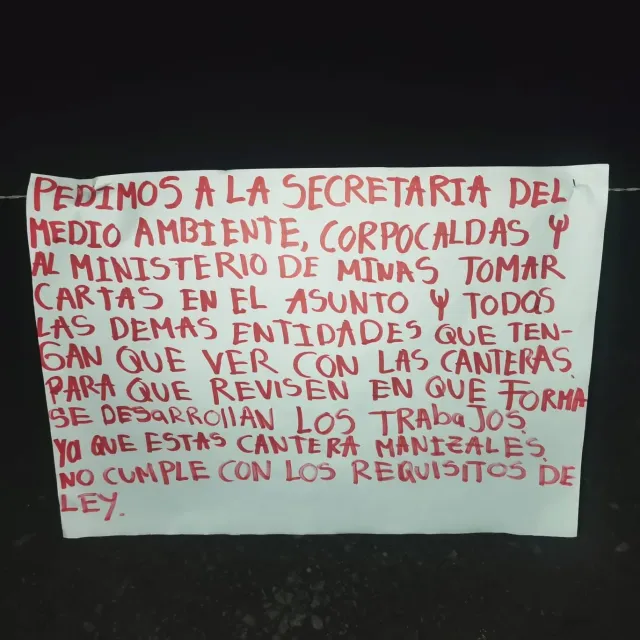 PEDIMOS A LA SECRETARIA DEL
MEDIO AMBIENTE, CORPOCALDAS Y
AL MINISTERIO DE MINAS TOMAR
CARTAS EN EL ASUNTO Y TODAS
LAS DEMAS ENTIDADES QUE TEN-
GAN QUE VER CON LAS CANTERAS.
PARA QUE REVISEN EN QUE FORMA
SE DESARROllAN LOS TRABaJOS.
Ya QUE ESTAS CANTERA MANIZALES.
NO CUMPLE CON LOS REQUISITOS DE
LEY.